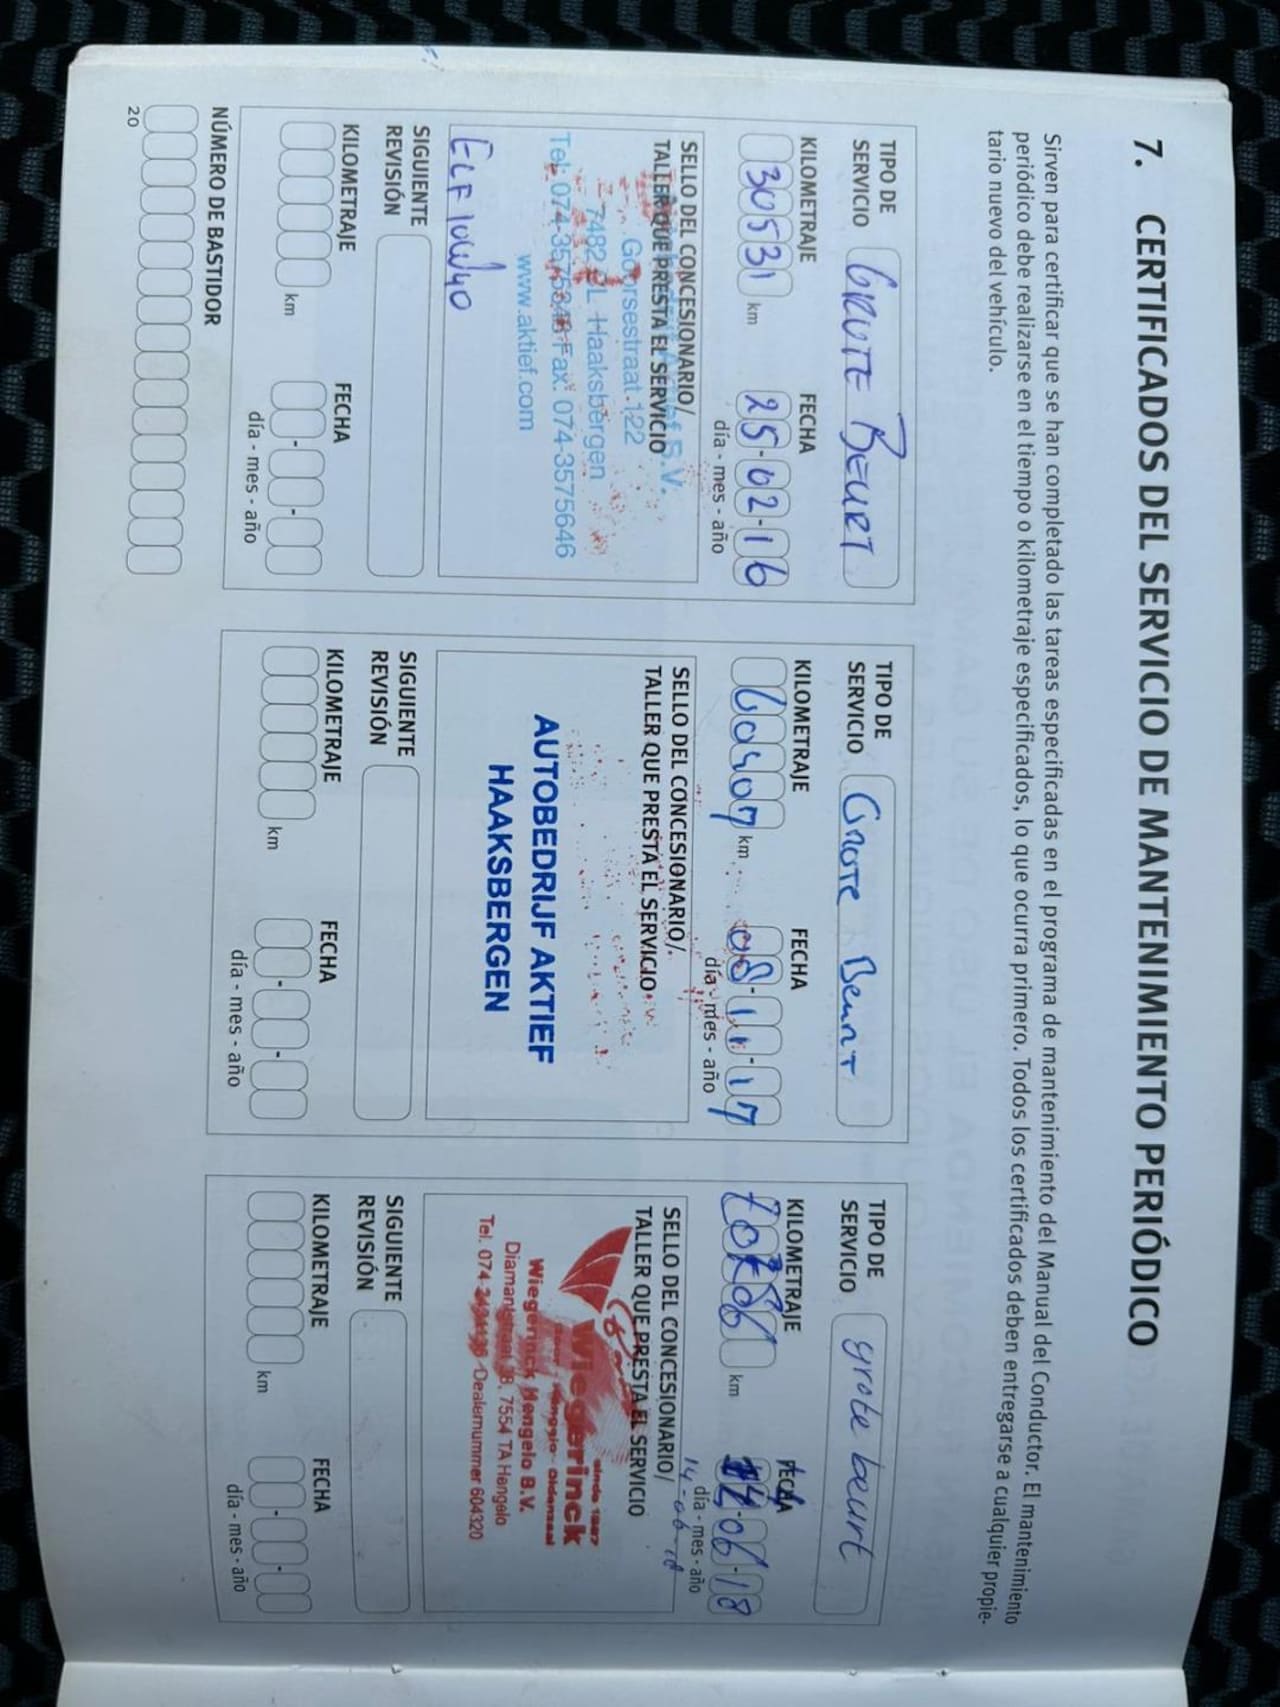 7. CERTIFICADOS DEL SERVICIO DE MANTENIMIENTO PERIÓDICO
Sirven para certificar que se han completado las tareas especificadas en el programa de mantenimiento del Manual del Conductor. El mantenimiento
periódico debe realizarse en el tiempo o kilometraje especificados, lo que ocurra primero. Todos los certificados deben entregarse a cualquier propie-
tario nuevo del vehículo.
TIPO DE
SERVICIO GROTE BEURT
KILOMETRAJE FECHA
30531 km 25-02-16
día - mes - año
SELLO DEL CONCESIONARIO/
TALLER QUE PRESTA EL SERVICIO
B.V.
Goorsestraat 122
7482 Haaksbergen
Tel: 074-3575646 Fax: 074-3575646
www.aktief.com
ELF 10W40
SIGUIENTE
REVISIÓN
KILOMETRAJE FECHA
km
día - mes - año
NÚMERO DE BASTIDOR
20
TIPO DE
SERVICIO Grote Beurt
KILOMETRAJE FECHA
km 08-11-17
día - mes - año
SELLO DEL CONCESIONARIO/
TALLER QUE PRESTA EL SERVICIO
AUTOBEDRIJF AKTIEF
HAAKSBERGEN
SIGUIENTE
REVISIÓN
KILOMETRAJE FECHA
km
día - mes - año
TIPO DE
SERVICIO grote beurt
KILOMETRAJE FECHA
km 14-06-18
día - mes - año
14-06-18
SELLO DEL CONCESIONARIO/
TALLER QUE PRESTA EL SERVICIO
sinds 1887
Wiegerinck
Hengelo - Oldenzaal
Wiegerinck Hengelo B.V.
Diamantstraat 38, 7554 TA Hengelo
Tel. 074 Dealernummer 604320
SIGUIENTE
REVISIÓN
KILOMETRAJE FECHA
km
día - mes - año